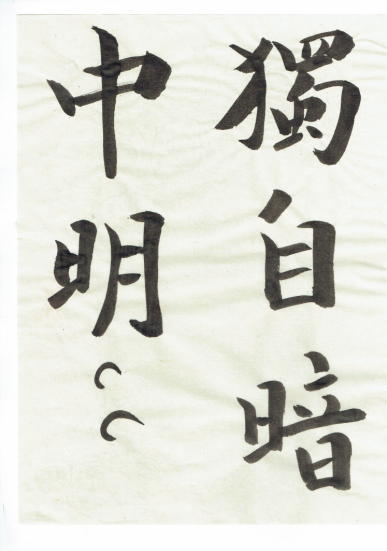 獨自暗
中明〻〻